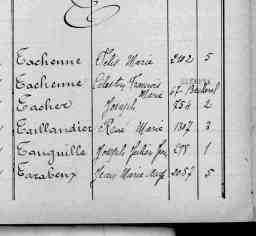 Tachenne Félis Marie 2102 5
Tachenne Célestin François
Marie 47
Tacher Joseph 754 2
Taillandier René Marie 1307 3
Tanguille Joseph Julien 698 1
Tarabeux Jean Marie Aug 2057 5